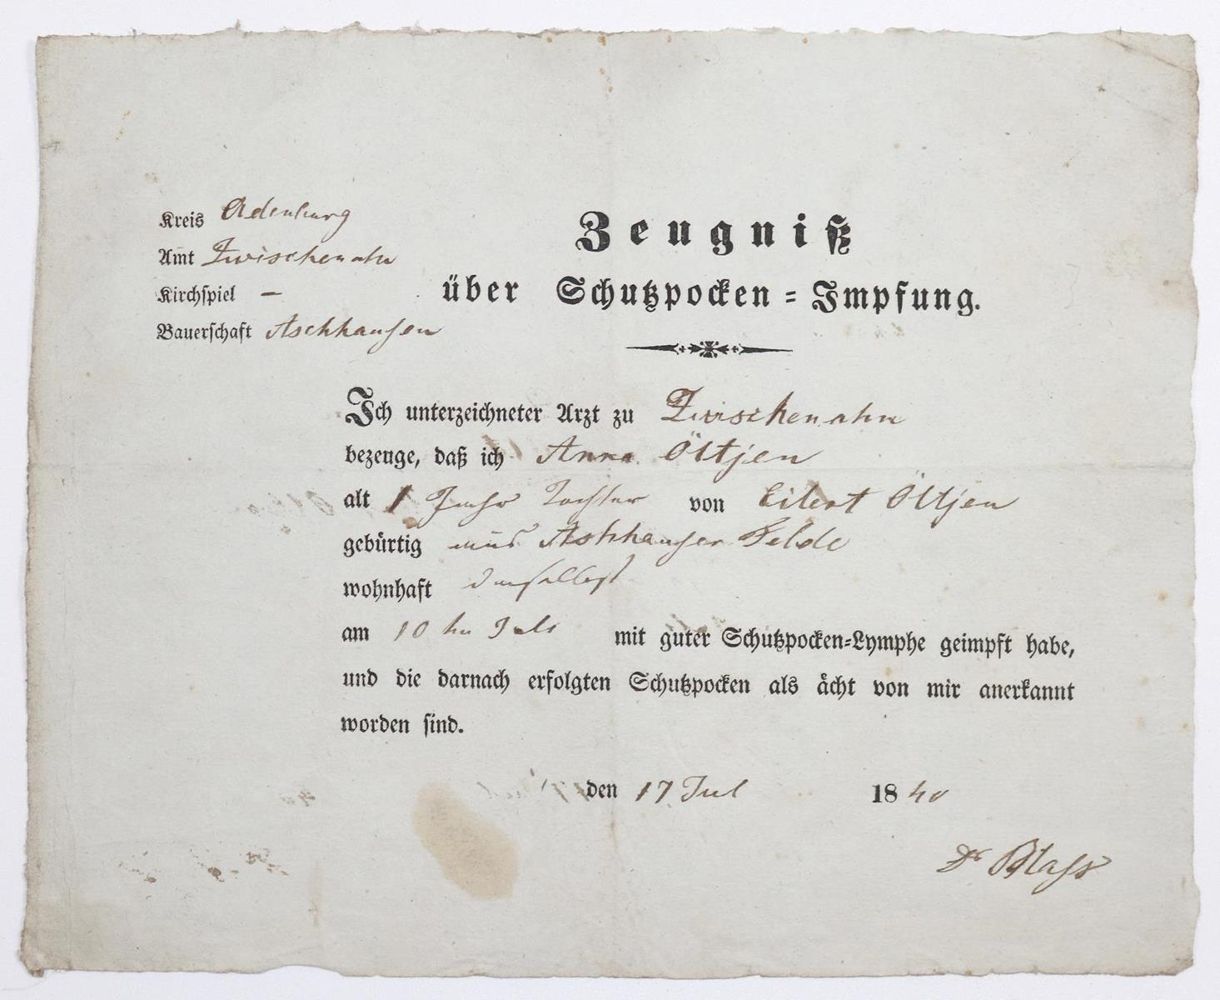 Kreis Oldenburg
Amt Zwischenahn
Kirchspiel –
Bauerschaft Aschhausen
Zeugniß
über Schutzpocken-Impfung.
Ich unterzeichneter Arzt zu Zwischenahn
bezeuge, daß ich Anna Öltjen
alt 1 Jahr Tochter von Eilert Öltjen
gebürtig aus Aschhauser Felde
wohnhaft daselbst
am 10 Juli mit guter Schutzpocken-Lymphe geimpft habe,
und die darnach erfolgten Schutzpocken als ächt von mir anerkannt
worden sind.
den 17 Jul 1840
Dr